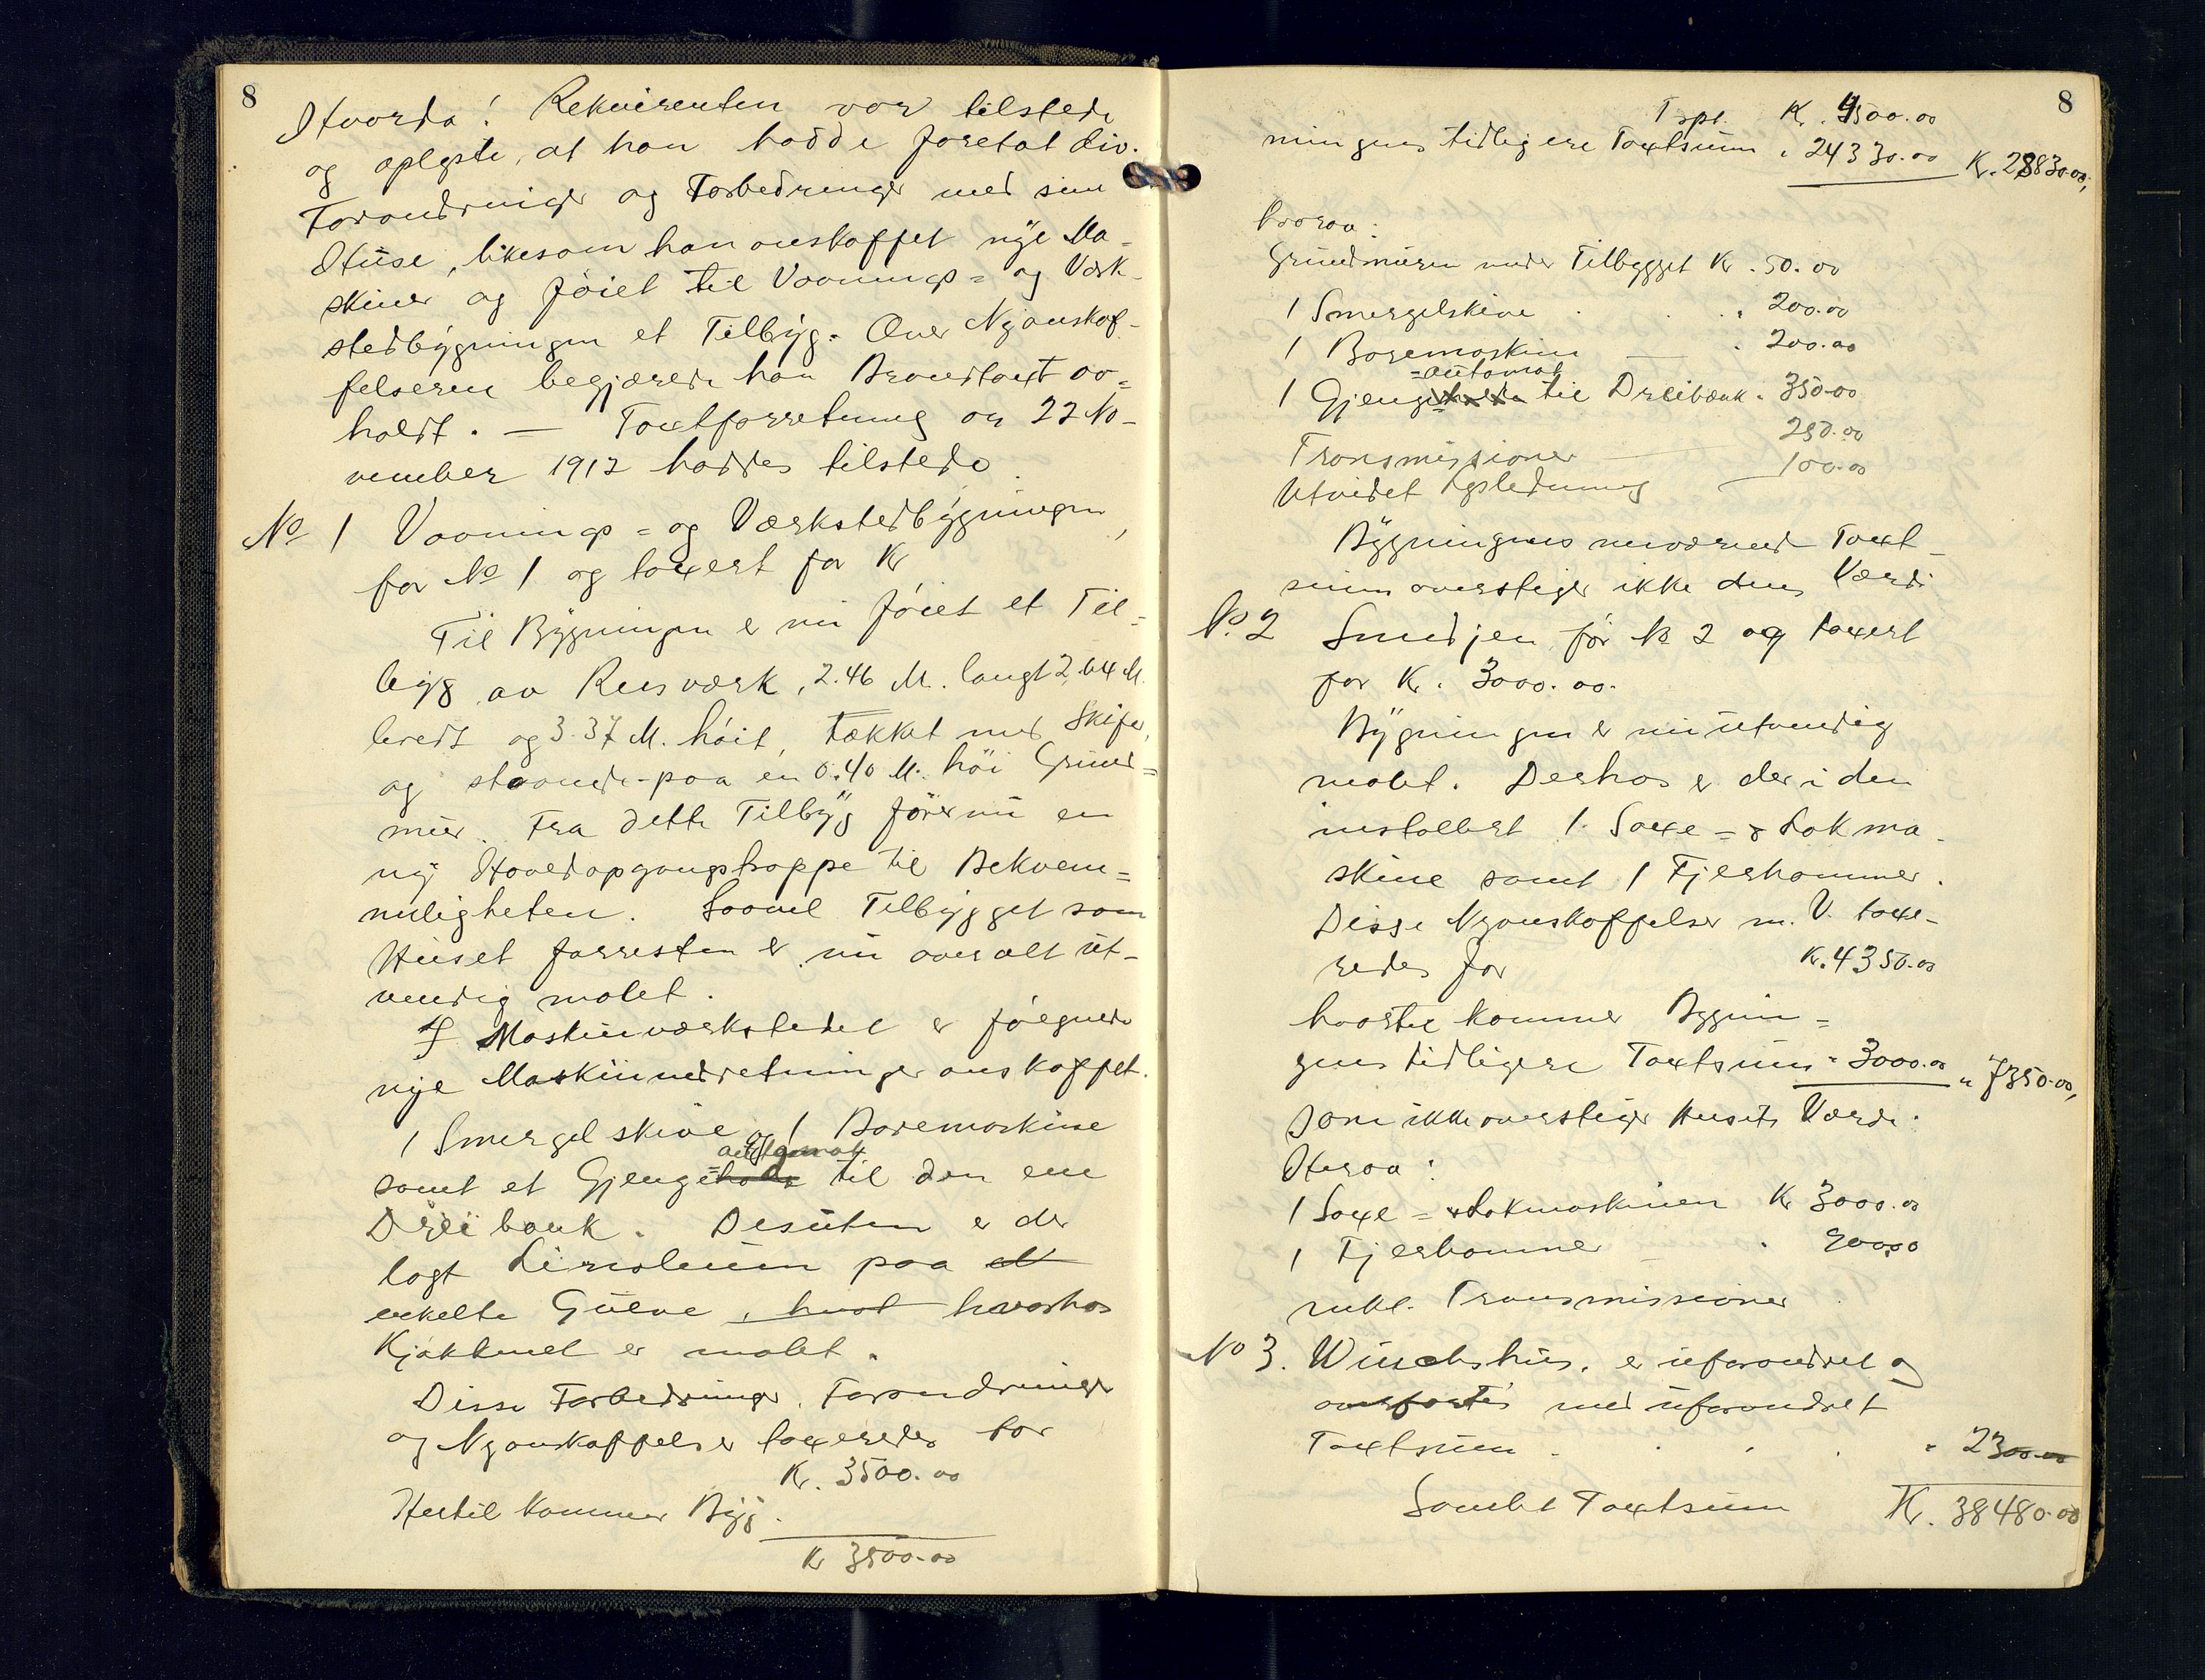 8
Hvorda! Rekvirenten var tilstede
og oplyste, at han hadde foretat div.
Forandringer og Forbedringer med sine
Huse, likesom han anskaffet nye Ma-
skiner og føiet til Vaanings- og Verk-
stedbygningen et Tilbyg. Over Nyanskaf-
felseren begjærede han Brandtaxt av-
holdt. — Taxtforretning av 22 No-
vember 1912 haddes tilstede.
No 1 Vaanings- og Værkstedbygningen,
før No 1 og taxert for Kr
Til Bygningen er nu føiet et Til-
byg av Reisværk, 2.46 M. langt 2.64 M.
bredt og 3.37 M. høit, tækket med Skifer,
og staaende paa en 0.40 M. høi Grund-
mur. Fra dette Tilbyg fører nu en
ny Hovedopgangstrappe til Bekvem-
meligheten. Saavel Tilbygget som
Huset forresten er nu overalt ut-
vendig malet.
I Maskinværkstedet er følgende
nye Maskinindretninger anskaffet.
1 Smergelskive og 1 Boremaskine
=automat
samt et Gjenge til den ene
Dreibænk. Desuten er der
lagt Linoleum paa et
enkelte Gulve, hvorhos
Kjøkkenet er malet.
Disse Forbedringer, Forandringer
og Nyanskaffelser taxeredes for
Kr. 3500.00
Hertil kommer Byg-
Kr 3500.00
8
Tspt. Kr. 4500.00
ningens tidligere Taxtsum " 24330.00 Kr. 28830.00,
hvorav:
Grundmuren under Tilbygget Kr. 50.00
1 Smergelskive " 200.00
1 Boremaskine " 200.00
=automat
1 Gjenge til Dreibænk " 350.00
Transmissioner 250.00
Utvidet Lysledning 100.00
Bygningens nuværende Taxt-
sum overstiger ikke dens Værdi
No. 2 Smedjen, før No 2 og taxert
for Kr. 3000.00.
Bygningen er nu utvendig
malet. Derhos er der i den
installert 1 Saxe- & Lokma-
skine samt 1 Fjerhammer.
Disse Nyanskaffelser m. V. taxe-
redes for Kr. 4350.00
hvortil kommer Bygnin-
gens tidligere Taxtsum " 3000.00 " 7350.00,
som ikke overstiger Husets Værdi.
Herav:
1 Saxe- & Lokmaskinen Kr 3000.00
1 Fjerhammer " 900.00
inkl. Transmissioner
No 3. Wuschshus, er uforandret og
overførtes med uforandret
Taxtsum " 2300.00
Samlet Taxtsum Kr. 38480.00